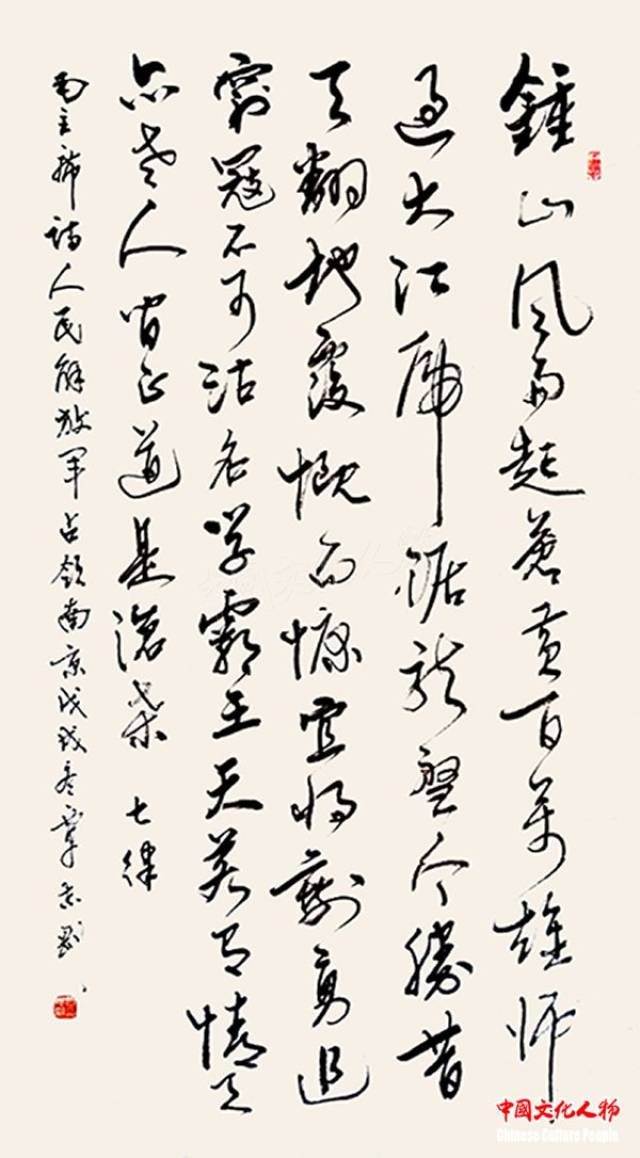 鍾山风雨起蒼黄百萬雄师
過大江虎踞龙盤今勝昔
天翻地覆慨而慷宜将剩勇追
窮寇不可沽名学霸王天若有情天
亦老人间正道是滄桑 七律
毛主席诗人民解放军占领南京戊戌冬覃志刚
中國文化人物
Chinese Culture People